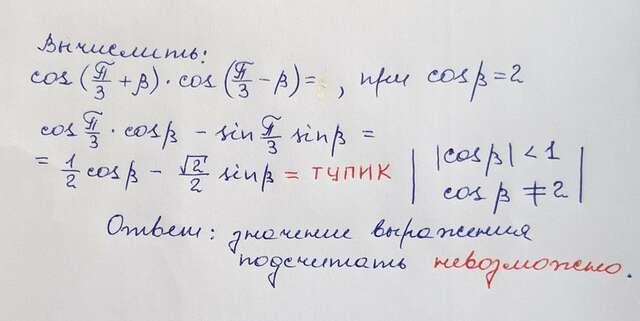 Вычислить:
cos(π/3 + β) · cos(π/3 − β) = , при cos β = 2
cos π/3 · cos β − sin π/3 sin β =
= 1/2 cos β − √2/2 sin β = ТУПИК | |cos β| < 1
cos β ≠ 2 |
Ответ: значение выражения
подсчитать невозможно.